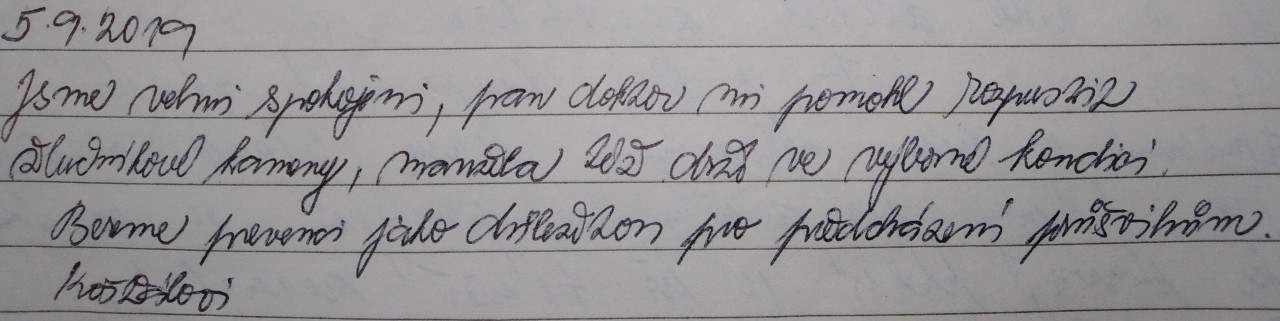 5.9.2019
Jsme velmi spokojeni, pan doktor mi pomohl rozpustit
žlučníkové kameny, manžela též drží ve výborné kondici.
Bereme prevenci jako důležitou pro předcházení průšvihům.